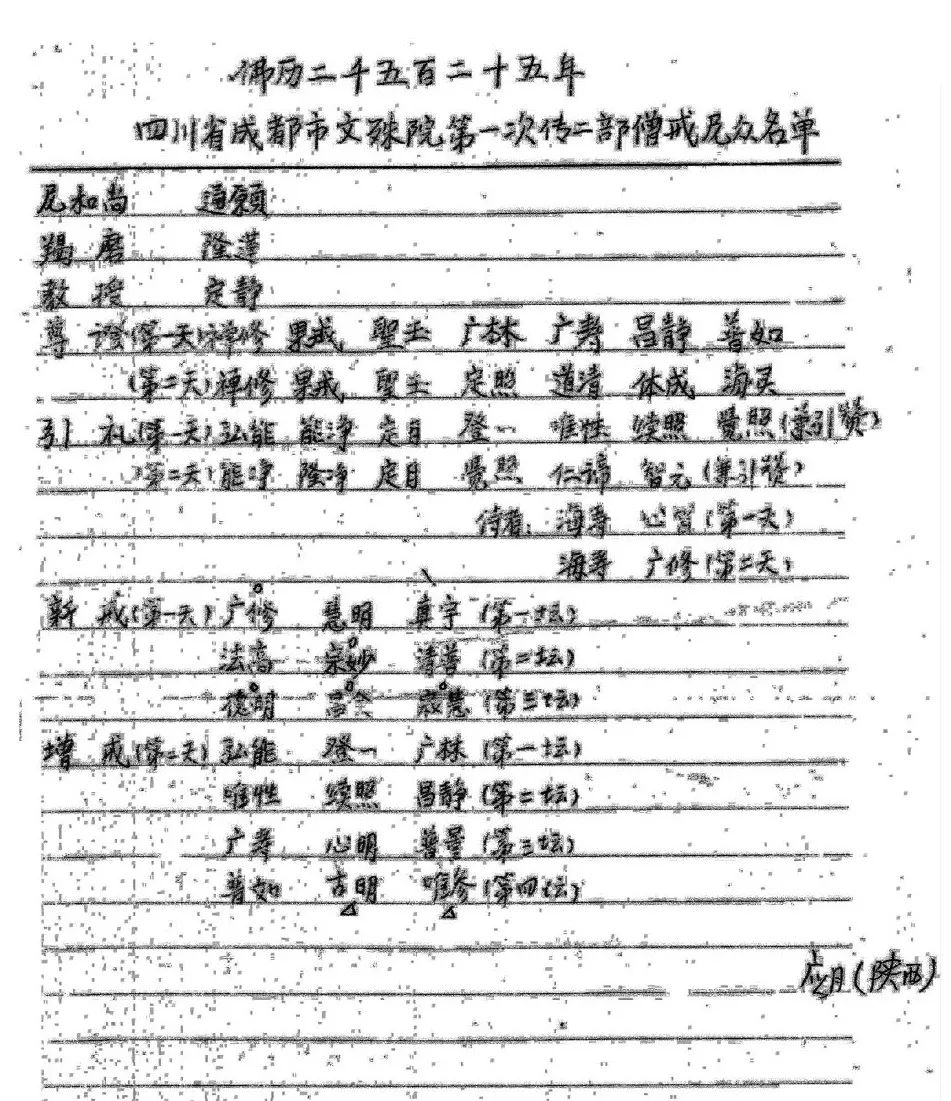 佛历二千五百二十五年
四川省成都市文殊院第一次传二部僧戒尼众名单
尼和尚 通愿
羯磨 隆莲
教授 定静
尊證(第一天)禅修 果戒 聖玉 广林 广寿 昌静 普如
(第二天)禅修 果戒 聖玉 定照 道清 体成 海灵
引礼(第一天)弘能 能净 定目 登一 唯性 续照 覺照(兼引赞)
(第二天)能净 隆净 定目 覺照 仁谛 智元(兼引赞)
侍者:海寿 心智(第一天)
海寿 广修(第二天)
新戒(第一天)广修 慧明 真宇(第一坛)
法高 宗妙 清善(第二坛)
德明 寂慧(第三坛)
增戒(第二天)弘能 登一 广林(第一坛)
唯性 续照 昌静(第二坛)
广寿 心明 普量(第三坛)
普如 古明 唯参(第四坛)
应月(陕西)